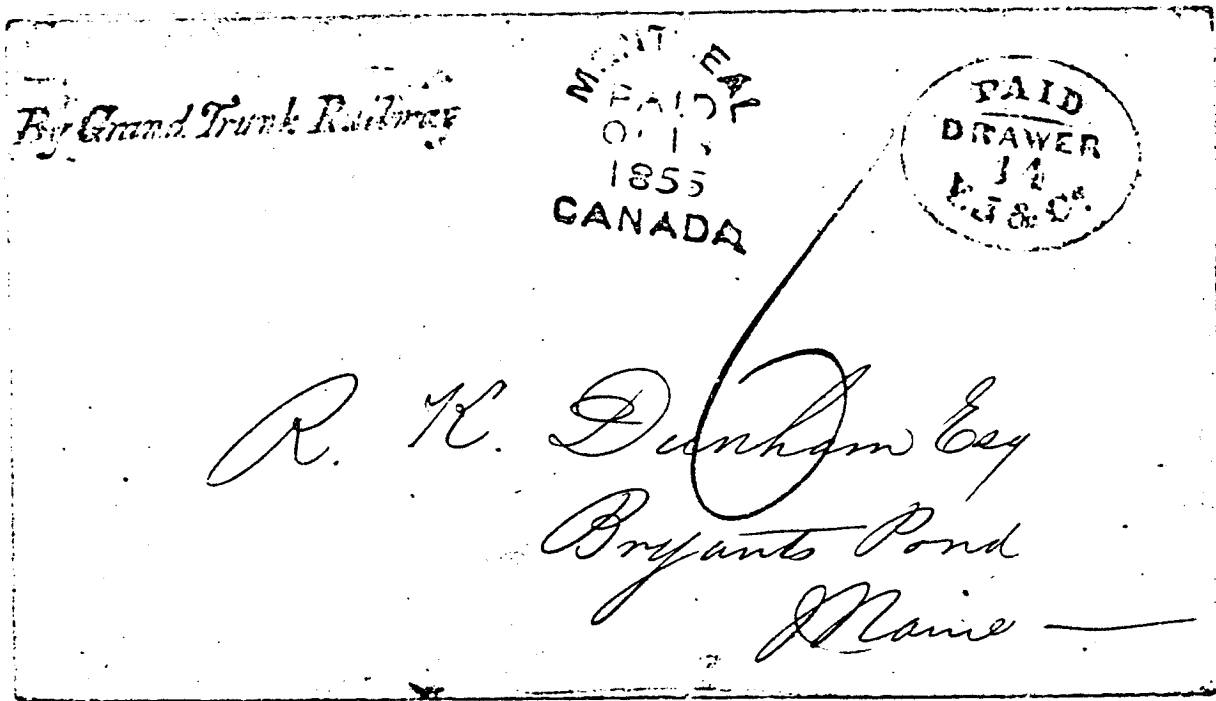 By Grand Trunk Railway
MONTREAL
PAID
1855
CANADA
PAID
DRAWER
14
& Co.
6
R. K. Dunham Esq
Bryants Pond
Maine